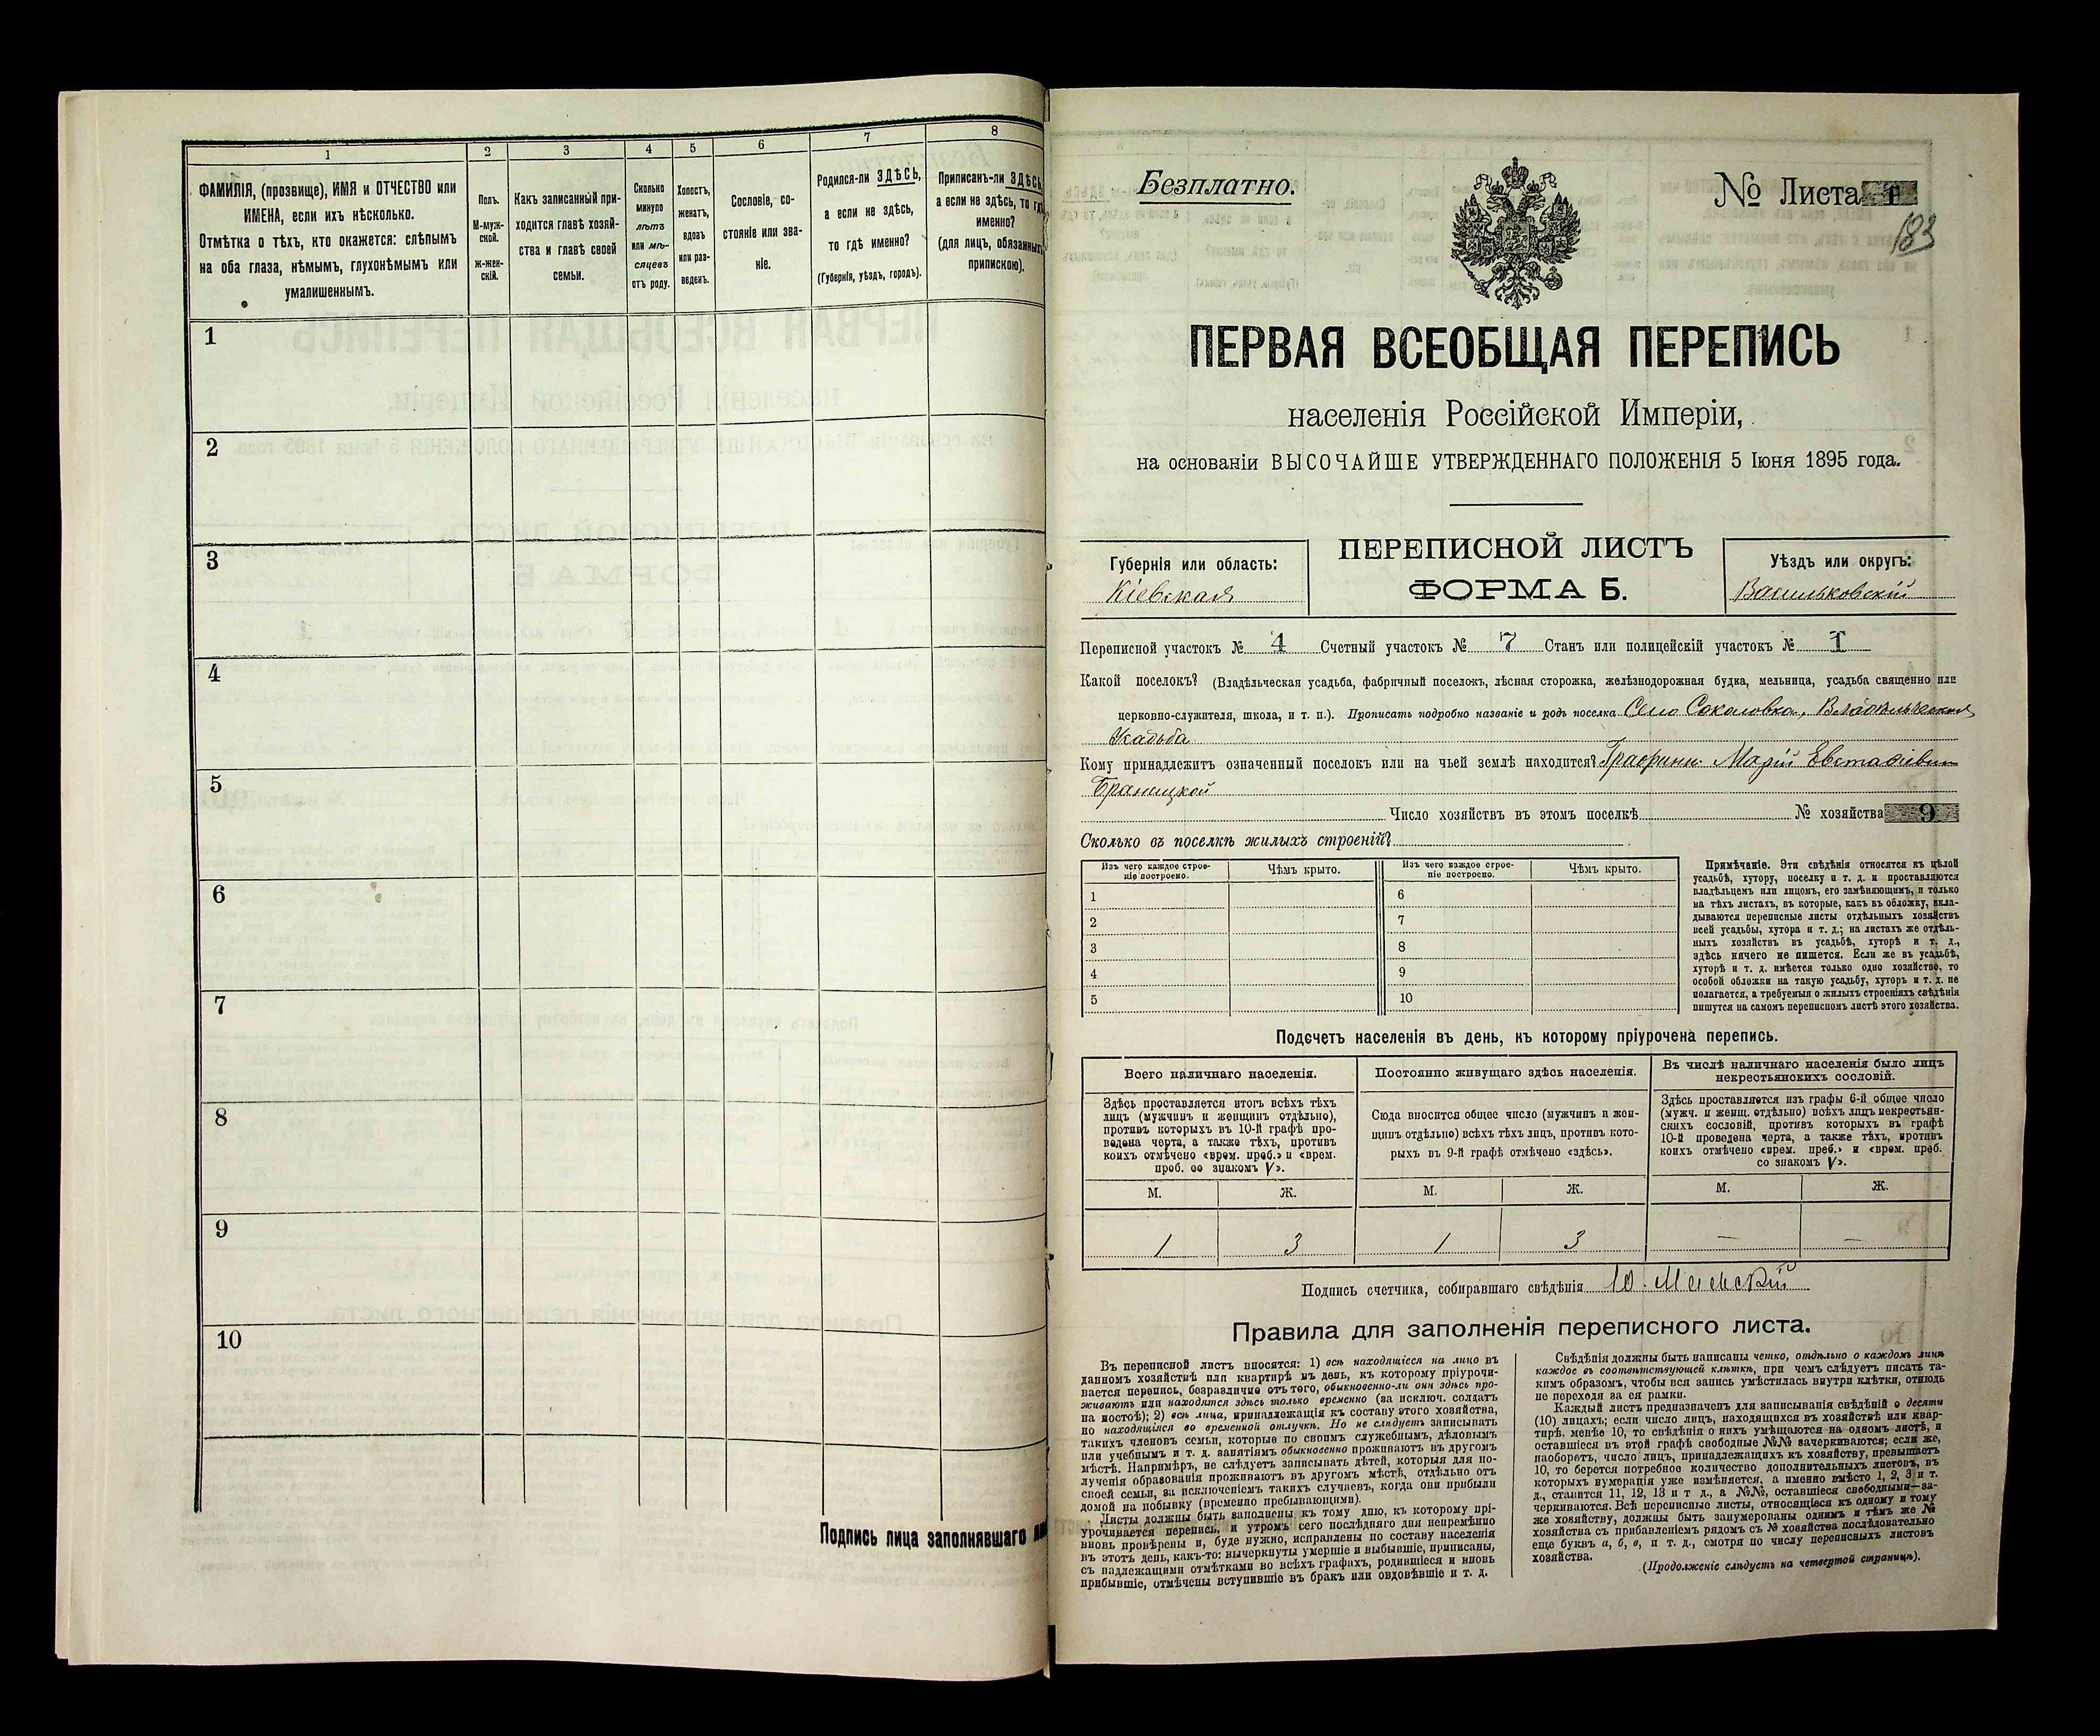 1
2
3
4
5
6
7
8
ФАМИЛІЯ, (прозвище), ИМЯ и ОТЧЕСТВО или
ИМЕНА, если ихъ нѣсколько.
Отмѣтка о тѣхъ, кто окажется: слѣпымъ
на оба глаза, нѣмымъ, глухонѣмымъ или
умалишеннымъ.
Полъ.
М-муж-
ской.
ж-жен-
скій.
Какъ записанный при-
ходится главѣ хозяй-
ства и главѣ своей
семьи.
Сколько
минуло
лѣтъ
или мѣ-
сяцевъ
отъ роду.
Холостъ,
женатъ,
вдовъ
или раз-
веденъ.
Сословіе, со-
стояніе или зва-
ніе.
Родился-ли ЗДѢСЬ,
а если не здѣсь,
то гдѣ именно?
(Губернія, уѣздъ, городъ).
Приписанъ-ли ЗДѢСЬ,
а если не здѣсь, то гдѣ
именно?
(для лицъ, обязанныхъ
припискою).
1
2
3
4
5
6
7
8
9
10
Подпись лица заполнявшаго
Безплатно.
№ Листа
183
ПЕРВАЯ ВСЕОБЩАЯ ПЕРЕПИСЬ
населенія Россійской Имперіи,
на основаніи ВЫСОЧАЙШЕ УТВЕРЖДЕННАГО ПОЛОЖЕНІЯ 5 Іюня 1895 года.
Губернія или область:
Кіевская
ПЕРЕПИСНОЙ ЛИСТЪ
ФОРМА Б.
Уѣздъ или округъ:
Васильковскій
Переписной участокъ № 4 Счетный участокъ № 7 Станъ или полицейскій участокъ № 1
Какой поселокъ? (Владѣльческая усадьба, фабричный поселокъ, лѣсная сторожка, желѣзнодорожная будка, мельница, усадьба священно или
церковно-служителя, школа, и т. п.). Прописать подробно названіе и родъ поселка Село Соколовка, Владѣльческая
Усадьба
Кому принадлежитъ означенный поселокъ или на чьей землѣ находится? Графини Маріи Евстафіевны
Браницкой
Число хозяйствъ въ этомъ поселкѣ № хозяйства 9
Сколько въ поселкѣ жилыхъ строеній?
Изъ чего каждое строе-
ніе построено.
Чѣмъ крыто.
Изъ чего каждое строе-
ніе построено.
Чѣмъ крыто.
1
2
3
4
5
6
7
8
9
10
Примѣчаніе. Эти свѣдѣнія относятся къ цѣлой
усадьбѣ, хутору, поселку и т. д. и проставляются
владѣльцемъ или лицомъ, его замѣняющимъ, и только
на тѣхъ листахъ, въ которые, какъ въ обложку, вкла-
дываются переписные листы отдѣльныхъ хозяйствъ
всей усадьбы, хутора и т. д.; на листахъ же отдѣль-
ныхъ хозяйствъ въ усадьбѣ, хуторѣ и т. д.,
здѣсь ничего не пишется. Если же въ усадьбѣ,
хуторѣ и т. д. имѣется только одно хозяйство, то
особой обложки на такую усадьбу, хуторъ и т. д. не
полагается, а требуемыя о жилыхъ строеніяхъ свѣдѣнія
пишутся на самомъ переписномъ листѣ этого хозяйства.
Подсчетъ населенія въ день, къ которому пріурочена перепись.
Всего наличнаго населенія.
Постоянно живущаго здѣсь населенія.
Въ числѣ наличнаго населенія было лицъ
некрестьянскихъ сословій.
Здѣсь проставляется итогъ всѣхъ тѣхъ
лицъ (мужчинъ и женщинъ отдѣльно),
противъ которыхъ въ 10-й графѣ про-
ведена черта, а также тѣхъ, противъ
коихъ отмѣчено «врем. преб.» и «врем.
преб. со знакомъ V».
Сюда вносится общее число (мужчинъ и жен-
щинъ отдѣльно) всѣхъ тѣхъ лицъ, противъ кото-
рыхъ въ 9-й графѣ отмѣчено «здѣсь».
Здѣсь проставляется изъ графы 6-й общее число
(мужч. и женщ. отдѣльно) всѣхъ лицъ некрестьян-
скихъ сословій, противъ которыхъ въ графѣ
10-й проведена черта, а также тѣхъ, противъ
коихъ отмѣчено «врем. преб.» и «врем. преб.
со знакомъ V».
М. Ж. М. Ж. М. Ж.
1 3 1 3 — —
Подпись счетчика, собиравшаго свѣдѣнія Ю.
Правила для заполненія переписного листа.
Въ переписной листъ вносятся: 1) всѣ находящіеся на лицо въ
данномъ хозяйствѣ или квартирѣ въ день, къ которому пріурочи-
вается перепись, безразлично отъ того, обыкновенно-ли они здѣсь про-
живаютъ или находятся здѣсь только временно (за исключ. солдатъ
на постоѣ); 2) всѣ лица, принадлежащія къ составу этого хозяйства,
но находящіяся во временной отлучкѣ. Но не слѣдуетъ записывать
такихъ членовъ семьи, которые по своимъ служебнымъ, дѣловымъ
или учебнымъ и т. д. занятіямъ обыкновенно проживаютъ въ другомъ
мѣстѣ. Напримѣръ, не слѣдуетъ записывать дѣтей, которыя для по-
лученія образованія проживаютъ въ другомъ мѣстѣ, отдѣльно отъ
своей семьи, за исключеніемъ такихъ случаевъ, когда они прибыли
домой на побывку (временно пребывающими).
Листы должны быть заполнены къ тому дню, къ которому прі-
урочивается перепись, и утромъ сего послѣдняго дня непремѣнно
вновь провѣрены и, буде нужно, исправлены по составу населенія
въ этотъ день, какъ-то: вычеркнуты умершіе и выбывшіе, приписаны,
съ надлежащими отмѣтками во всѣхъ графахъ, родившіеся и вновь
прибывшіе, отмѣчены вступившіе въ бракъ или овдовѣвшіе и т. д.
Свѣдѣнія должны быть написаны четко, отдѣльно о каждомъ лицѣ
каждое въ соотвѣтствующей клѣткѣ, при чемъ слѣдуетъ писать та-
кимъ образомъ, чтобы вся запись умѣстилась внутри клѣтки, отнюдь
не переходя за ея рамки.
Каждый листъ предназначенъ для записыванія свѣдѣній о десяти
(10) лицахъ; если число лицъ, находящихся въ хозяйствѣ или квар-
тирѣ, менѣе 10, то свѣдѣнія о нихъ умѣщаются на одномъ листѣ, и
оставшіеся въ этой графѣ свободные №№ зачеркиваются; если же,
наоборотъ, число лицъ, принадлежащихъ къ хозяйству, превышаетъ
10, то берется потребное количество дополнительныхъ листовъ, въ
которыхъ нумерація уже измѣняется, а именно вмѣсто 1, 2, 3 и т.
д., ставится 11, 12, 13 и т д., а №№, оставшіеся свободными—за-
черкиваются. Всѣ переписные листы, относящіеся къ одному и тому
же хозяйству, должны быть занумерованы однимъ и тѣмъ же №
хозяйства съ прибавленіемъ рядомъ съ № хозяйства послѣдовательно
еще буквъ а, б, в, и т. д., смотря по числу переписныхъ листовъ
хозяйства.
(Продолженіе слѣдуетъ на четвертой страницѣ).